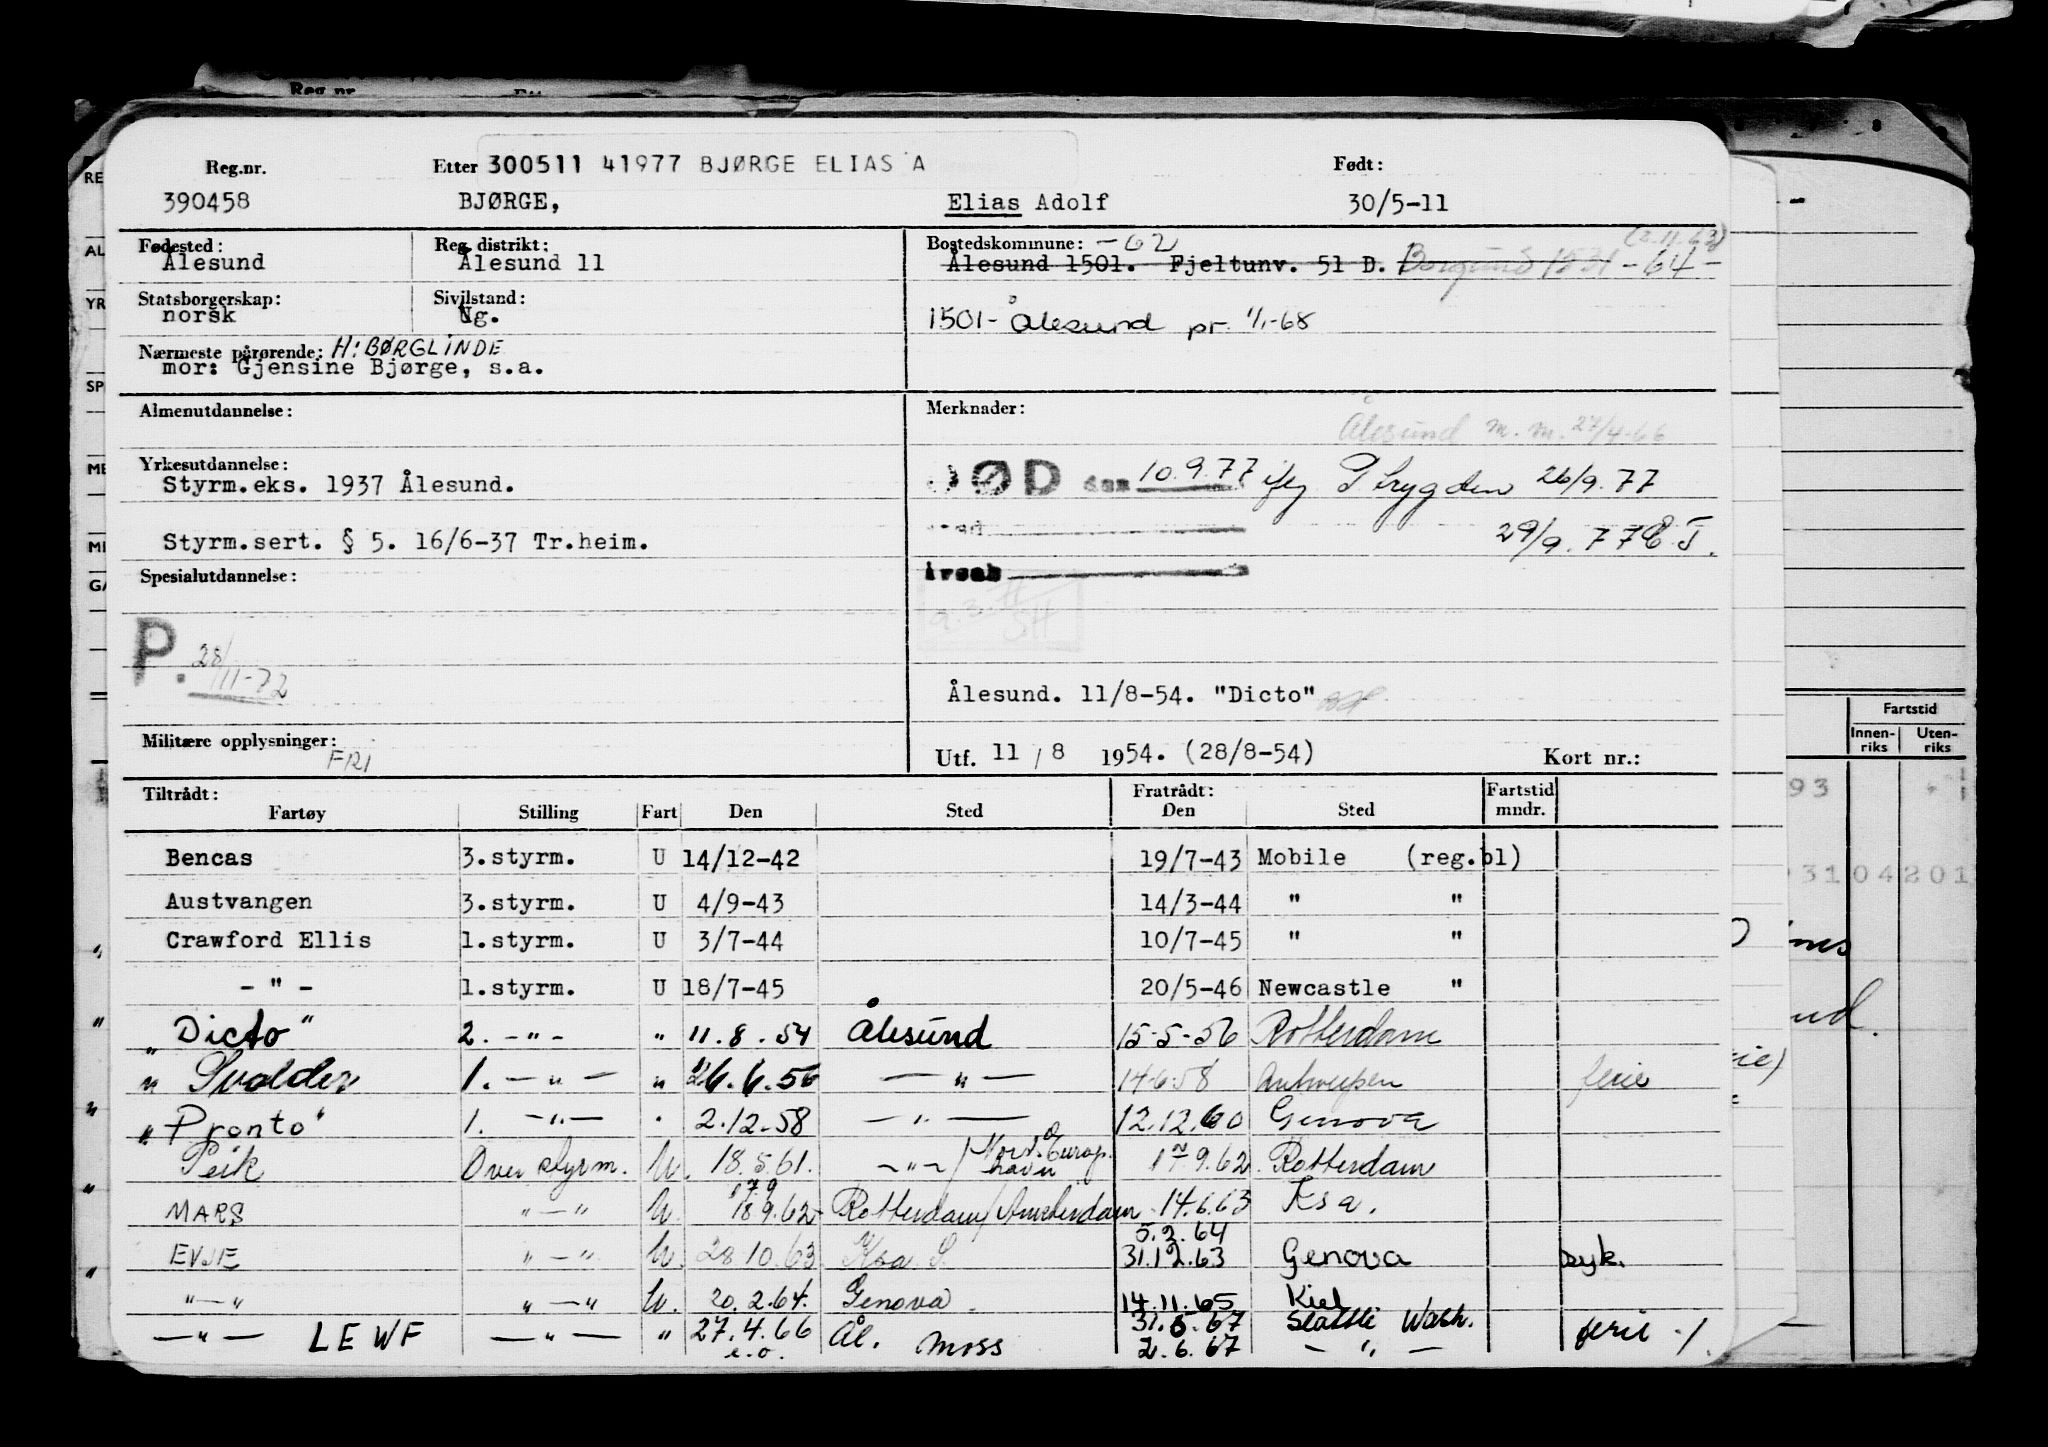 Reg.nr. Etter 300511 41977 BJØRGE ELIAS A Født:
390458 BJØRGE, Elias Adolf 30/5-11
Fødested: Reg. distrikt: Bostedskommune: -62 (2.11.63)
Ålesund Ålesund 11 Ålesund 1501. Fjeltunv. 51 D. Borgund 1531 -64-
Statsborgerskap: Sivilstand:
norsk Ug. 1501- Ålesund pr. 1/1-68
Nærmeste pårørende: H: BØRGLINDE
mor: Gjensine Bjørge, s.a.
Almenutdannelse: Merknader:
Ålesund m.m. 27/4-66
Yrkesutdannelse:
Styrm.eks. 1937 Ålesund. DØD den 10.9.77 iflg P.trygden 26/9.77
Styrm.sert. § 5. 16/6-37 Tr.heim. 29/9.77
Spesialutdannelse: årsak
P. 28/11-72
Ålesund. 11/8-54. "Dicto"
Militære opplysninger: FRI Utf. 11/8 1954. (28/8-54) Kort nr.:
Tiltrådt: Fratrådt: Fartstid
Fartøy Stilling Fart Den Sted Den Sted mndr.
Bencas 3.styrm. U 14/12-42 19/7-43 Mobile (reg.bl)
Austvangen 3.styrm. U 4/9-43 14/3-44 " "
Crawford Ellis 1.styrm. U 3/7-44 10/7-45 " "
- " - 1.styrm. U 18/7-45 20/5-46 Newcastle "
"Dicto" 2. -"- " 11.8.54 Ålesund 15-5-56 Rotterdam
" Svolder 1. -"- " 26.6.56 -"- 14-6-58 Antwerpen ferie
"Pronto" 1. -"- " 2.12.58 -"- 12.12.60 Genova
Peik Overstyrm. U. 18.5.61. -"-/Nord.Europ. havn 17.9.62 Rotterdam
MARS "-" U. 18.9.62 Rotterdam/Amsterdam 14.6.63 Ksa.
5.2.64
EVJE "-" U. 28.10.63 Ksa S. 31.12.63 Genova syk.
"-" "-" U. 20.2.64. Genova. 14.11.65 Kiel
-"- LEWF -"- " 27.4.66 Ål. Moss 31.5.67 Seattle Wash. ferie ./.
e.o. 2.6.67 -"-
Fartstid
Innen-riks Uten-riks